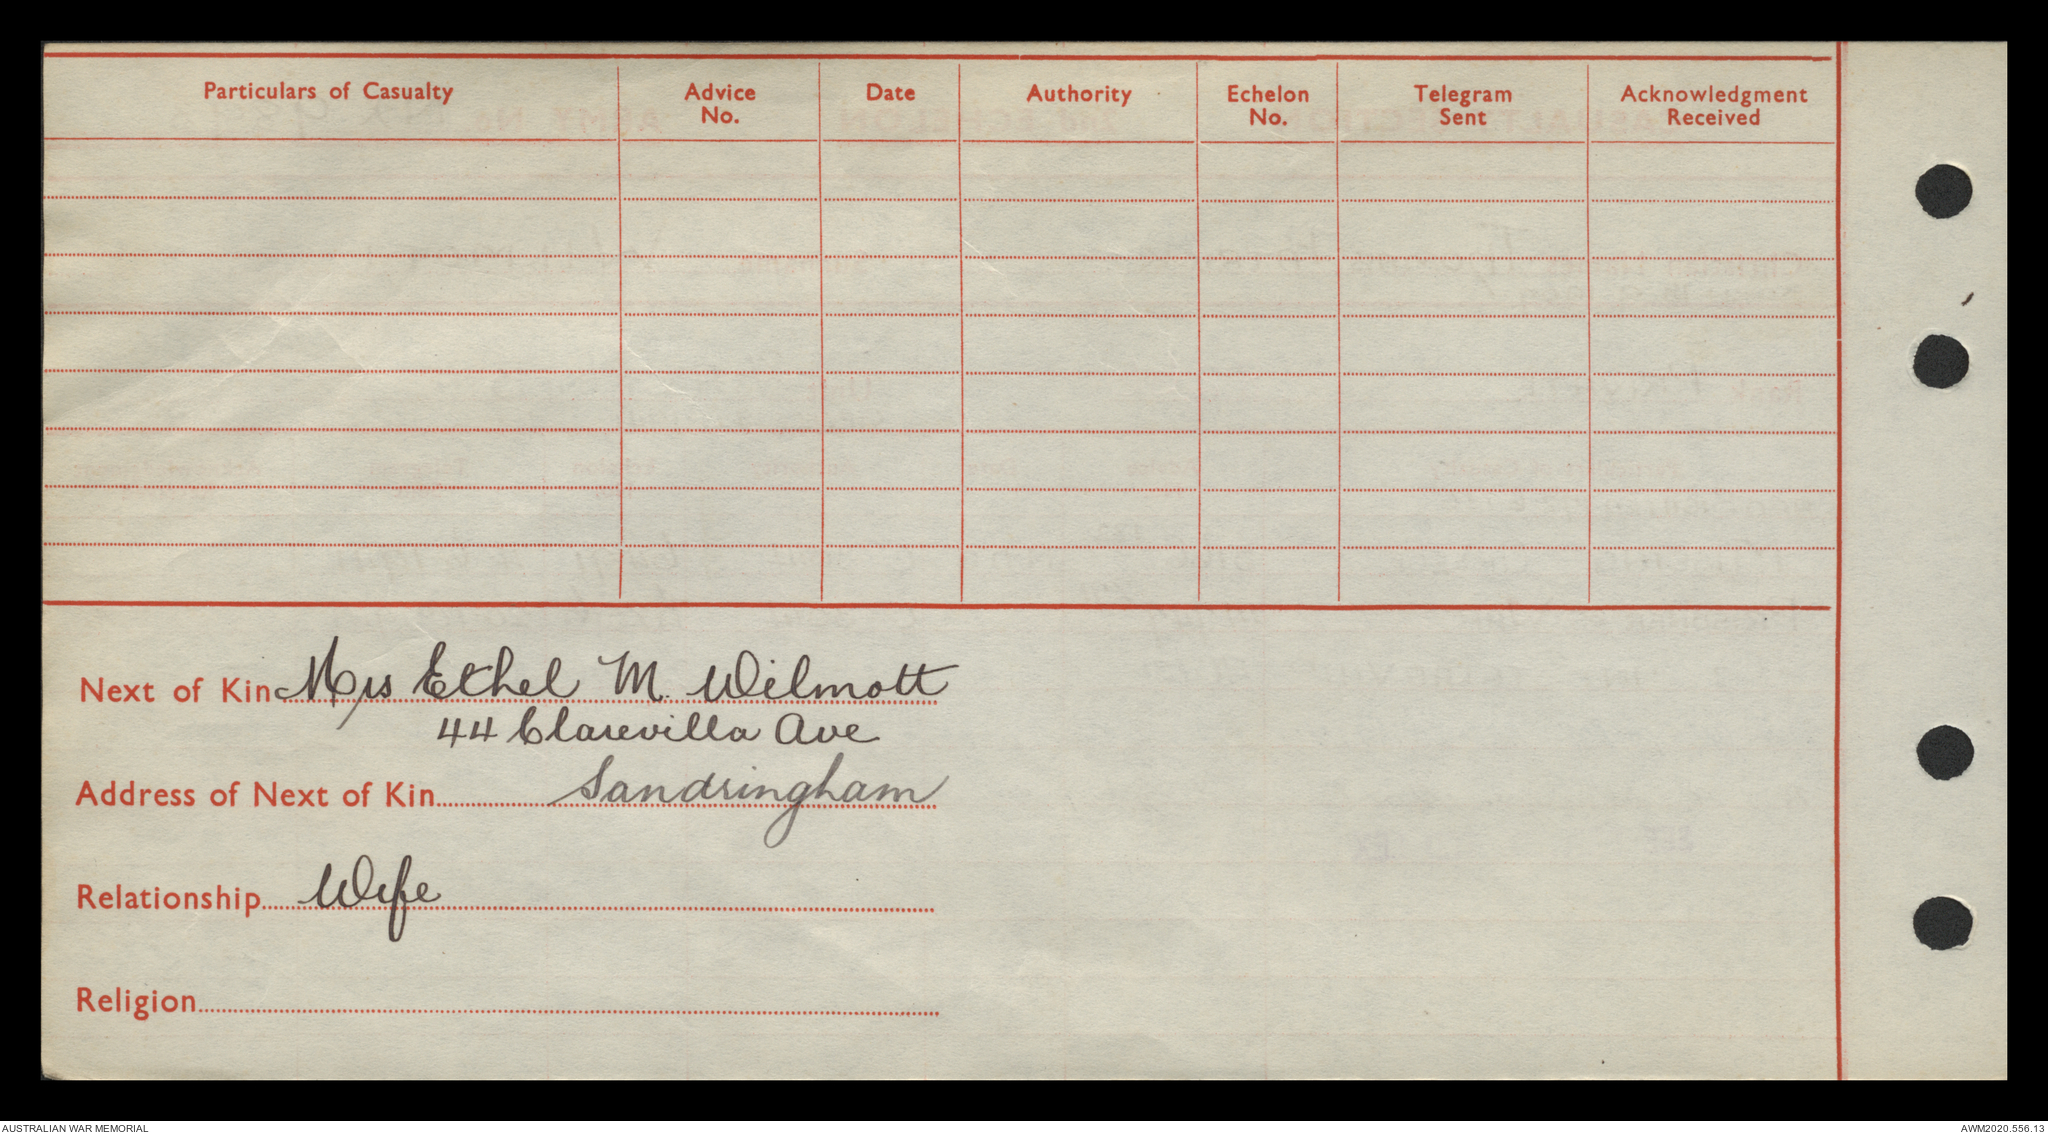 Particulars of Casualty Advice No. Date Authority Echelon No. Telegram Sent Acknowledgment Received
Next of Kin Mrs Ethel M. Wilmott
44 Clarevilla Ave
Address of Next of Kin Sandringham
Relationship Wife
Religion
AUSTRALIAN WAR MEMORIAL AWM2020.556.13